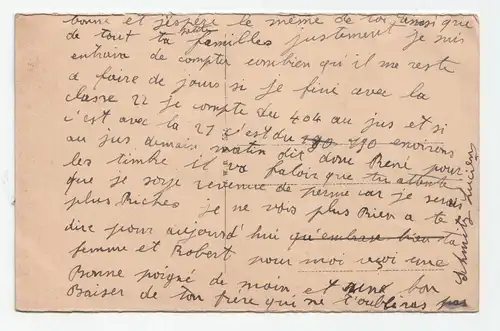 bonne et j'espère le même de toi, ainsi que
de tout ta petite familles justement je suis
entrain de compter combien qu'il me reste
a faire de jours si je fini avec la
classe 22 je compte du 404 au jus et si
c'est avec la 27 c'est du 190 290 environs
au jus demain matin dit donc René pour
les timbre il va faloir que tu attente
que je soye revenue de perme car je serai
plus Riches je ne vois plus Rien a te
dire pour aujourd'hui qu'embrasse bien ta
femme et Robert pour moi reçoi une
Bonne poigné de main et une bon
Baiser de ton frère qui ne t'oublieras pas
Schmitz Lucien